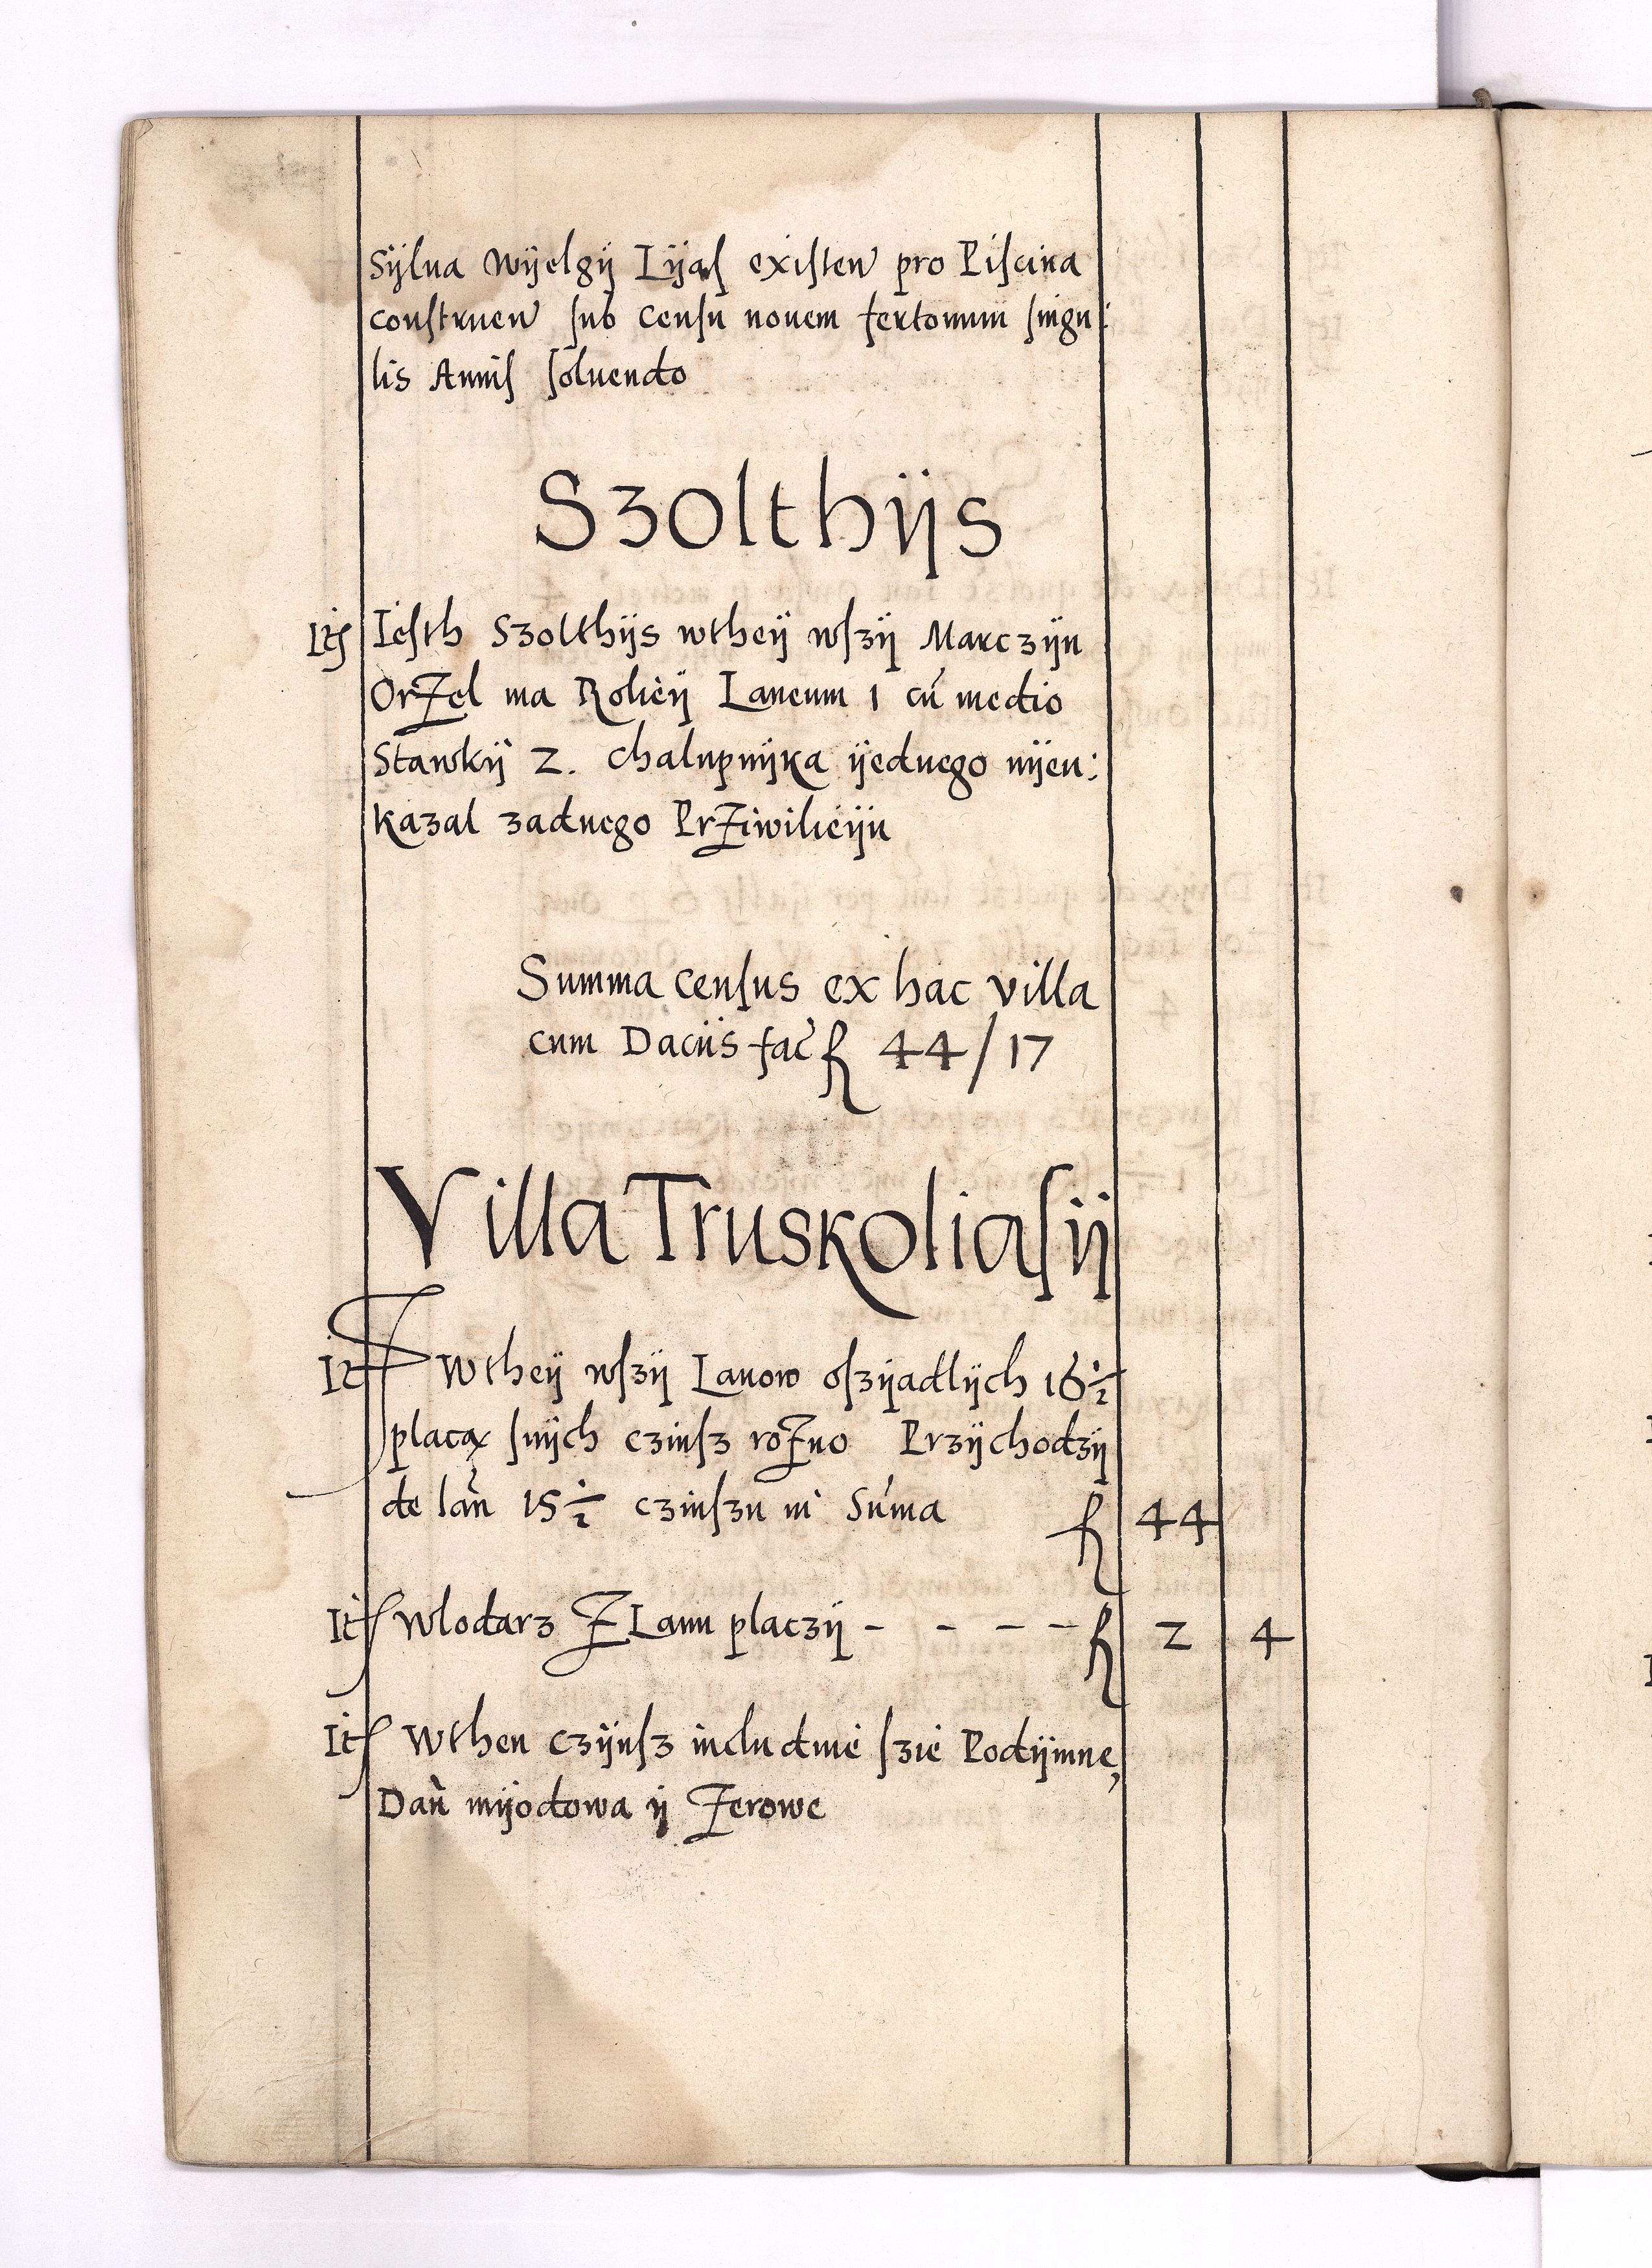 Sÿlua Wÿelgÿ Lÿas existen pro Piscina
construen sub Censu nouem fertonum singu:
lis Annis soluendo
Szolthÿs
It Iesth Szolthÿs wtheÿ wszÿ Marczÿn
Orzel ma Rolieÿ Laneum 1 cū medio
Stawkÿ 2. Chalupnÿka ÿednego nÿeu:
kazal zadnego Prziwilieÿu
Summa census ex hac villa
cum Daciis fac fl 44/17
Villa Truskoliasÿ
It Wtheÿ wszÿ Lanow oszÿadlÿch 16½
placą snÿch czinsz rozno Przÿchodzÿ
de lan 15½ czinszu in Sūma fl 44
It Wlodarz z Lanu placzÿ - - - - fl 2 4
It Wthen czÿnsz includuie szie Podÿmne,
Dań mÿodowa ÿ zerowe